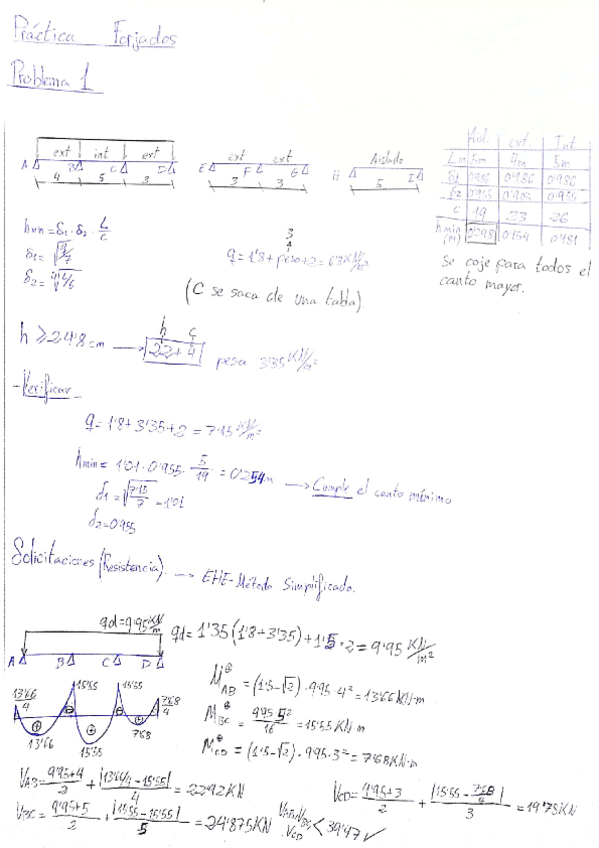 Práctica Forjados
Problema 1
ext int ext
A B C D
4 5 3
ext ext
E F G
3 3
Aislado
H I
5
Aisl. ext Int.
L m 5m 4m 5m
δ1 0'986 0'986 0'986
δ2 0'955
C 19 23 26
hmin (m) 0'248 0'154 0'181
se coje para todos el
canto mayor.
hmin = δ1 · δ2 · L/C
δ1 = √(q/7)
δ2 = ∜(L/6)
3
q = 1'8 + peso + 2 = 6'8 KN/m²
(C se saca de una tabla)
h ≥ 24'8 cm → 22 + 4 pesa 3'35 KN/m²
h c
- Verificar -
q = 1'8 + 3'35 + 2 = 7'15 KN/m²
hmin = 1'01 · 0'955 · 5/19 = 0'254 m → Cumple el canto mínimo
δ1 = √(7'15/7) = 1'01
δ2 = 0'955
Solicitaciones (Resistencia). → EHE-Método Simplificado.
qd = 9'95 KN/m
qd = 1'35 (1'8 + 3'35) + 1'5 · 2 = 9'95 KN/m²
A B C D
13'66/4 15'55 15'55 7'68/4
⊕ ⊖ ⊕ ⊖ ⊕
13'66 15'55 7'68
M⊕AB = (1'5 - √2) · 9'95 · 4² = 13'66 KN·m
M⊕BC = 9'95 · 5²/16 = 15'55 KN·m
M⊕CD = (1'5 - √2) · 9'95 · 3² = 7'68 KN·m
VAB = 9'95 · 4/2 + |13'66/4 - 15'55|/4 = 22'92 KN
VCD = 9'95 · 3/2 + |15'55 - 7'68/4|/3 = 19'78 KN
VBC = 9'95 · 5/2 + |15'55 - 15'55|/5 = 24'875 KN
VAB, VBC, VCD < 39'47 ✓